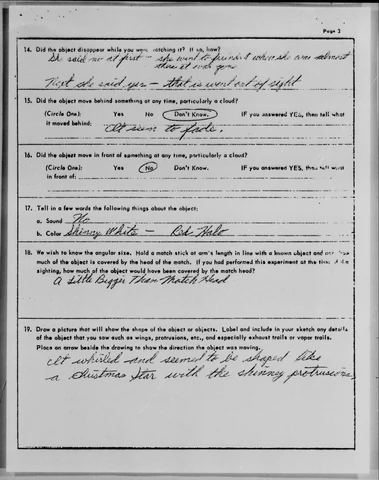 Page 3
14. Did the object disappear while you were watching it? If so, how?
She said no at first - she went to friend & when she was almost
there it was gone
Next she said yes - that is went out of sight
15. Did the object move behind something at any time, particularly a cloud?
(Circle One): Yes No Don't Know. IF you answered YES, then tell what
it moved behind: It seem to fade.
16. Did the object move in front of something at any time, particularly a cloud?
(Circle One): Yes No Don't Know. IF you answered YES, then tell what
in front of:
17. Tell in a few words the following things about the object:
a. Sound No
b. Color Shinny White - Red Halo
18. We wish to know the angular size. Hold a match stick at arm's length in line with a known object and
much of the object is covered by the head of the match. If you had performed this experiment at the time of the
sighting, how much of the object would have been covered by the match head?
A Little Bigger Than Match Head
19. Draw a picture that will show the shape of the object or objects. Label and include in your sketch any details
of the object that you saw such as wings, protrusions, etc., and especially exhaust trails or vapor trails.
Place an arrow beside the drawing to show the direction the object was moving.
It whirled and seemed to be shaped like
a Christmas Star with the shinney protrusions